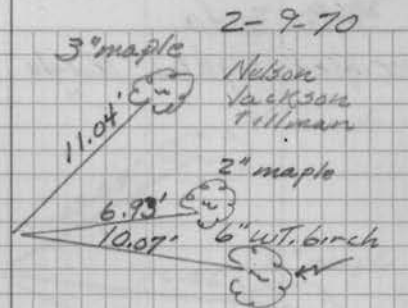 2-9-70
3" maple
Nelson
Jackson
Tillman
11.04'
2" maple
6.93'
10.07'
6" WT. birch